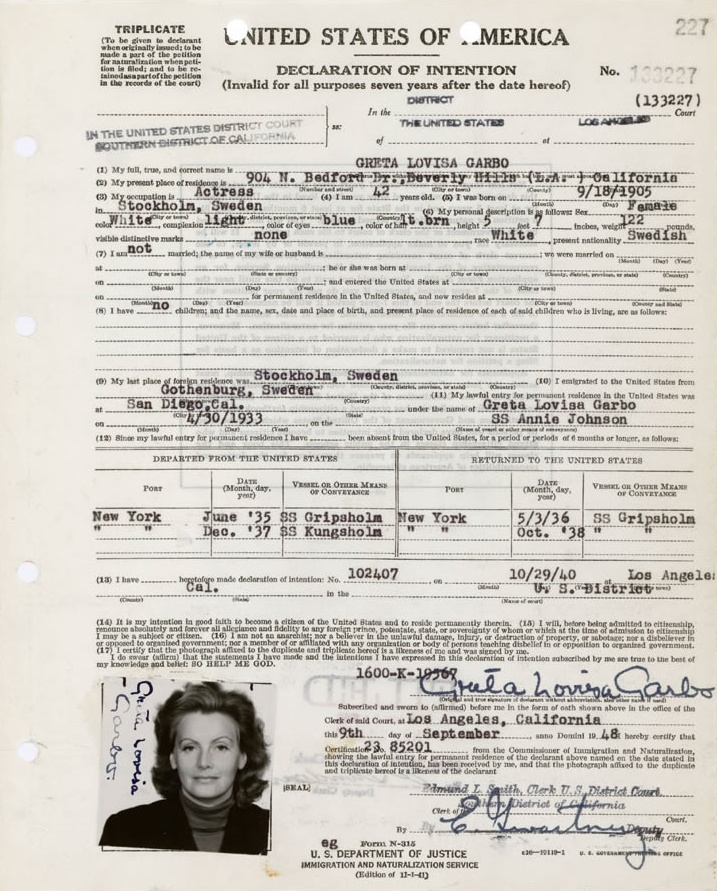 227
TRIPLICATE
(To be given to declarant
when originally issued; to be
made a part of the petition
for naturalization when peti-
tion is filed; and to be re-
tained as a part of the petition
in the records of the court)
UNITED STATES OF AMERICA
DECLARATION OF INTENTION
(Invalid for all purposes seven years after the date hereof)
No. 133227
(133227)
DISTRICT
IN THE UNITED STATES DISTRICT COURT
SOUTHERN DISTRICT OF CALIFORNIA
ss:
In the Court
of THE UNITED STATES at LOS ANGELES
(1) My full, true, and correct name is GRETA LOVISA GARBO
(2) My present place of residence is 904 N. Bedford Dr., Beverly Hills (L.A.) California
(Number and street) (City or town) (County) (State)
(3) My occupation is Actress (4) I am 42 years old. (5) I was born on 9/18/1905
(Month) (Day) (Year)
in Stockholm, Sweden (6) My personal description is as follows: Sex Female
(City or town) (County, district, province, or state) (Country)
color White, complexion light, color of eyes blue, color of hair lt.brn, height 5 feet 7 inches, weight 122 pounds,
visible distinctive marks none race White, present nationality Swedish
(7) I am not married; the name of my wife or husband is ; we were married on
(Month) (Day) (Year)
at ; he or she was born at
(City or town) (State or country) (City or town) (County, district, province, or state) (Country)
on ; and entered the United States at
(Month) (Day) (Year) (City or town) (State)
on for permanent residence in the United States, and now resides at
(Month) (Day) (Year) (City or town) (County and State)
(8) I have no children; and the name, sex, date and place of birth, and present place of residence of each of said children who is living, are as follows:
(9) My last place of foreign residence was Stockholm, Sweden (10) I emigrated to the United States from
(City or town) (County, district, province, or state) (Country)
Gothenburg, Sweden (11) My lawful entry for permanent residence in the United States was
(City or town) (Country)
at San Diego, Cal. under the name of Greta Lovisa Garbo
(City or town) (State)
on 4/30/1933 on the SS Annie Johnson
(Month) (Day) (Year) (Name of vessel or other means of conveyance)
(12) Since my lawful entry for permanent residence I have been absent from the United States, for a period or periods of 6 months or longer, as follows:
DEPARTED FROM THE UNITED STATES RETURNED TO THE UNITED STATES
PORT DATE (Month, day, year) VESSEL OR OTHER MEANS OF CONVEYANCE PORT DATE (Month, day, year) VESSEL OR OTHER MEANS OF CONVEYANCE
New York June '35 SS Gripsholm New York 5/3/36 SS Gripsholm
" " Dec. '37 SS Kungsholm " " Oct. '38 " "
(13) I have heretofore made declaration of intention: No. 102407, on 10/29/40 at Los Angeles
(Month) (Day) (Year) (City or town)
Cal. in the U. S. District
(County) (State) (Name of court)
(14) It is my intention in good faith to become a citizen of the United States and to reside permanently therein. (15) I will, before being admitted to citizenship,
renounce absolutely and forever all allegiance and fidelity to any foreign prince, potentate, state, or sovereignty of whom or which at the time of admission to citizenship
I may be a subject or citizen. (16) I am not an anarchist; nor a believer in the unlawful damage, injury, or destruction of property, or sabotage; nor a disbeliever in
or opposed to organized government; nor a member of or affiliated with any organization or body of persons teaching disbelief in or opposition to organized government.
(17) I certify that the photograph affixed to the duplicate and triplicate hereof is a likeness of me and was signed by me.
I do swear (affirm) that the statements I have made and the intentions I have expressed in this declaration of intention subscribed by me are true to the best of
my knowledge and belief: SO HELP ME GOD.
1600-K-19569
Greta Lovisa Garbo
(Original and true signature of declarant without abbreviation, also other name if used)
Subscribed and sworn to (affirmed) before me in the form of oath shown above in the office of the
Clerk of said Court, at Los Angeles, California
this 9th day of September anno Domini 19 48 hereby certify that
Certification 23 85201 from the Commissioner of Immigration and Naturalization,
showing the lawful entry for permanent residence of the declarant above named on the date stated in
this declaration of intention, has been received by me, and that the photograph affixed to the duplicate
and triplicate hereof is a likeness of the declarant
Greta Lovisa
Garbo.
[SEAL]
Edmund L. Smith, Clerk U.S. District Court,
Southern District of California
Clerk of the Court.
By Deputy
Deputy Clerk.
eg Form N-315
U. S. DEPARTMENT OF JUSTICE
IMMIGRATION AND NATURALIZATION SERVICE
(Edition of 11-1-41)
U. S. GOVERNMENT PRINTING OFFICE